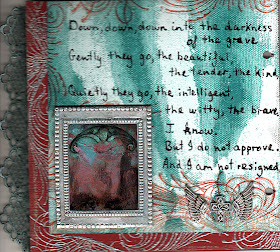 Down, down, down into the darkness
of the grave
Gently they go, the beautiful,
the tender, the kind
Quietly they go, the intelligent,
the witty, the brave
I know.
But I do not approve.
And I am not resigned